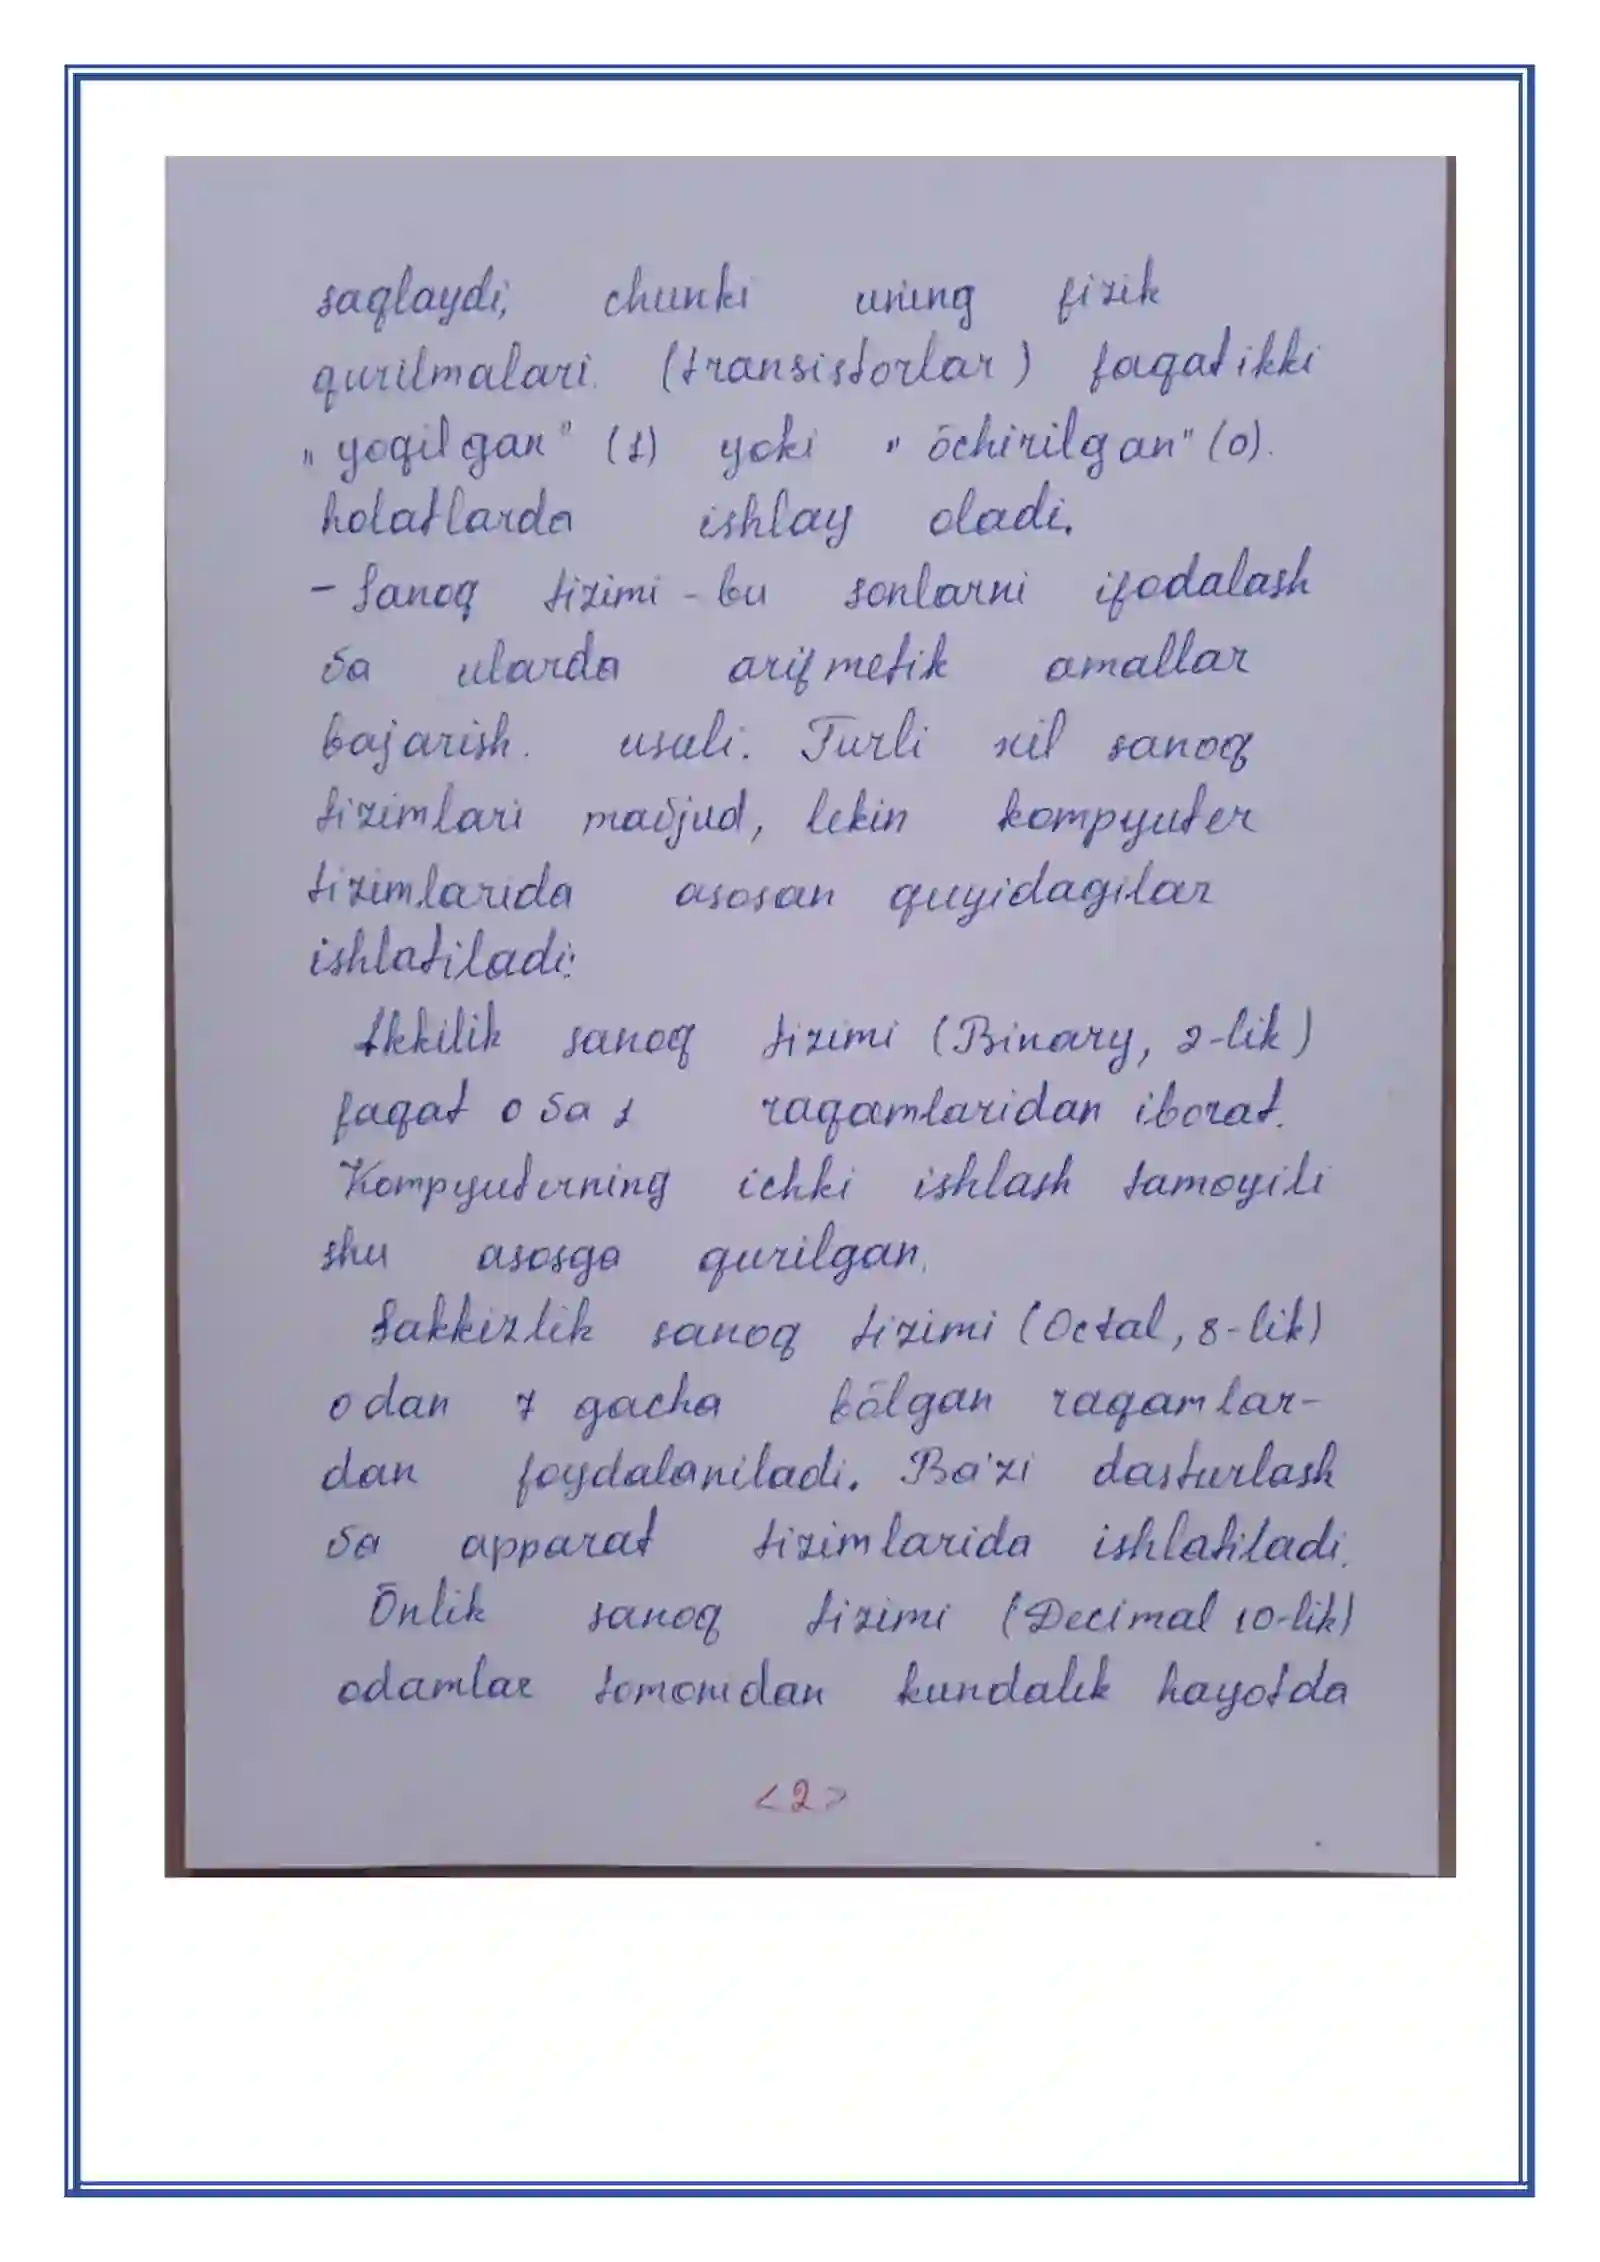 saqlaydi, chunki uning fizik
qurilmalari (transistorlar) faqat ikki
„yoqilgan" (1) yoki „ōchirilgan" (0).
holatlarda ishlay oladi.
- Sanoq tizimi - bu sonlarni ifodalash
va ularda arifmetik amallar
bajarish. usuli. Turli xil sanoq
tizimlari mavjud, lekin kompyuter
tizimlarida asosan quyidagilar
ishlatiladi:
Ikkilik sanoq tizimi (Binary, 2-lik)
faqat 0 va 1 raqamlaridan iborat.
Kompyuterning ichki ishlash tamoyili
shu asosga qurilgan.
Sakkizlik sanoq tizimi (Octal, 8-lik)
0 dan 7 gacha bōlgan raqamlar-
dan foydalaniladi. Ba'zi dasturlash
va apparat tizimlarida ishlatiladi.
Ōnlik sanoq tizimi (Decimal 10-lik)
odamlar tomonidan kundalik hayotda
<2>